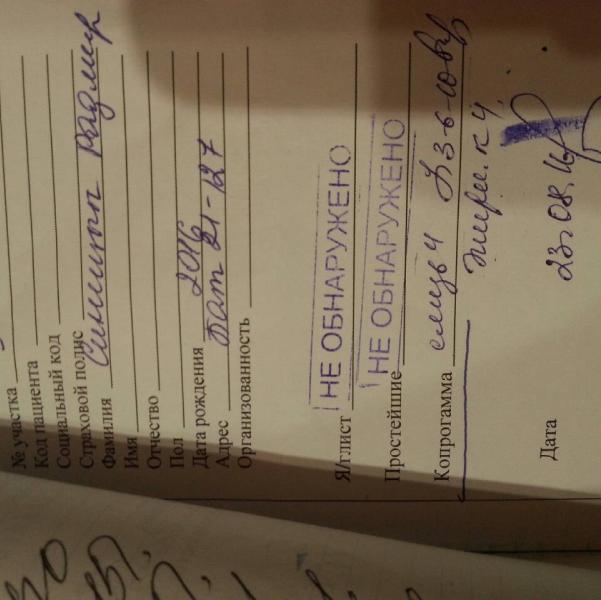 № участка
Код пациента
Социальный код
Страховой полис
Фамилия Синицын Радмир
Имя
Отчество
Пол
Дата рождения 2016
Адрес Бат 21-127
Организованность
Я/глист НЕ ОБНАРУЖЕНО
Простейшие НЕ ОБНАРУЖЕНО
Копрограмма слизь ч L 3-6-10
жирн. к ч
Дата 23.08.16